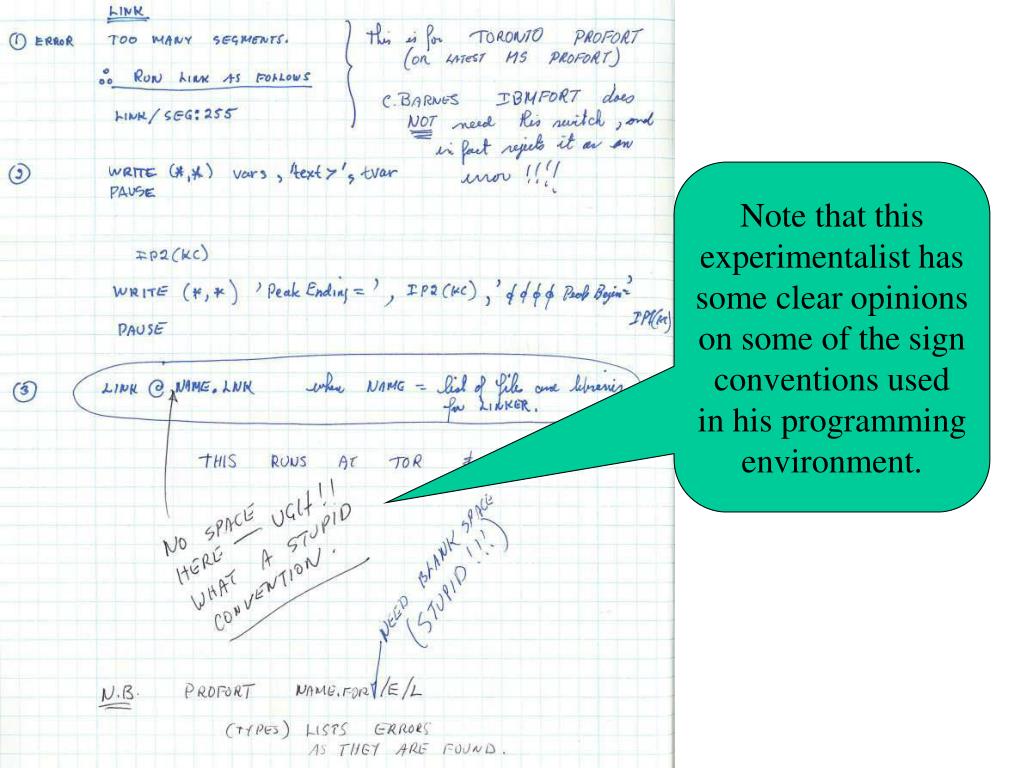 LINK
① ERROR TOO MANY SEGMENTS.
∴ RUN LINK AS FOLLOWS
LINK/SEG:255
This is for TORONTO PROFORT
(OR LATEST MS PROFORT)
C.BARNES IBMFORT does
NOT need this switch, and
in fact rejects it as an
error !!!!
② WRITE (*,*) vars, 'text>', tvar
PAUSE
IP2(KC)
WRITE (*,*) 'Peak Ending = ', IP2(KC), ' ¢¢¢¢ Peak Begin='
PAUSE
③ LINK @NAME.LNK when NAME = list of files and libraries
for LINKER.
THIS RUNS AT TOR
NO SPACE
HERE — UGH!!
WHAT A STUPID
CONVENTION.
NEED BLANK SPACE
(STUPID !!!)
N.B. PROFORT NAME.FOR /E/L
(TYPES) LISTS ERRORS
AS THEY ARE FOUND.
Note that this
experimentalist has
some clear opinions
on some of the sign
conventions used
in his programming
environment.